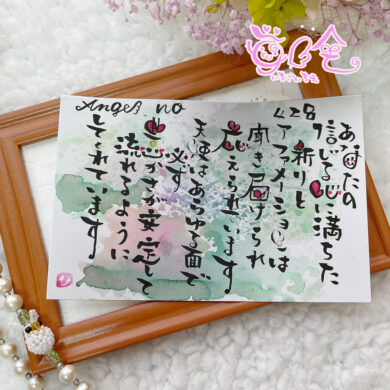 Angel no
428
あなたの
信じる心に満ちた
祈りと
アファメーションは
聞き届けられ
応えられています
天使はあらゆる面で
必ず
豊かさが安定して
流れるように
してくれています